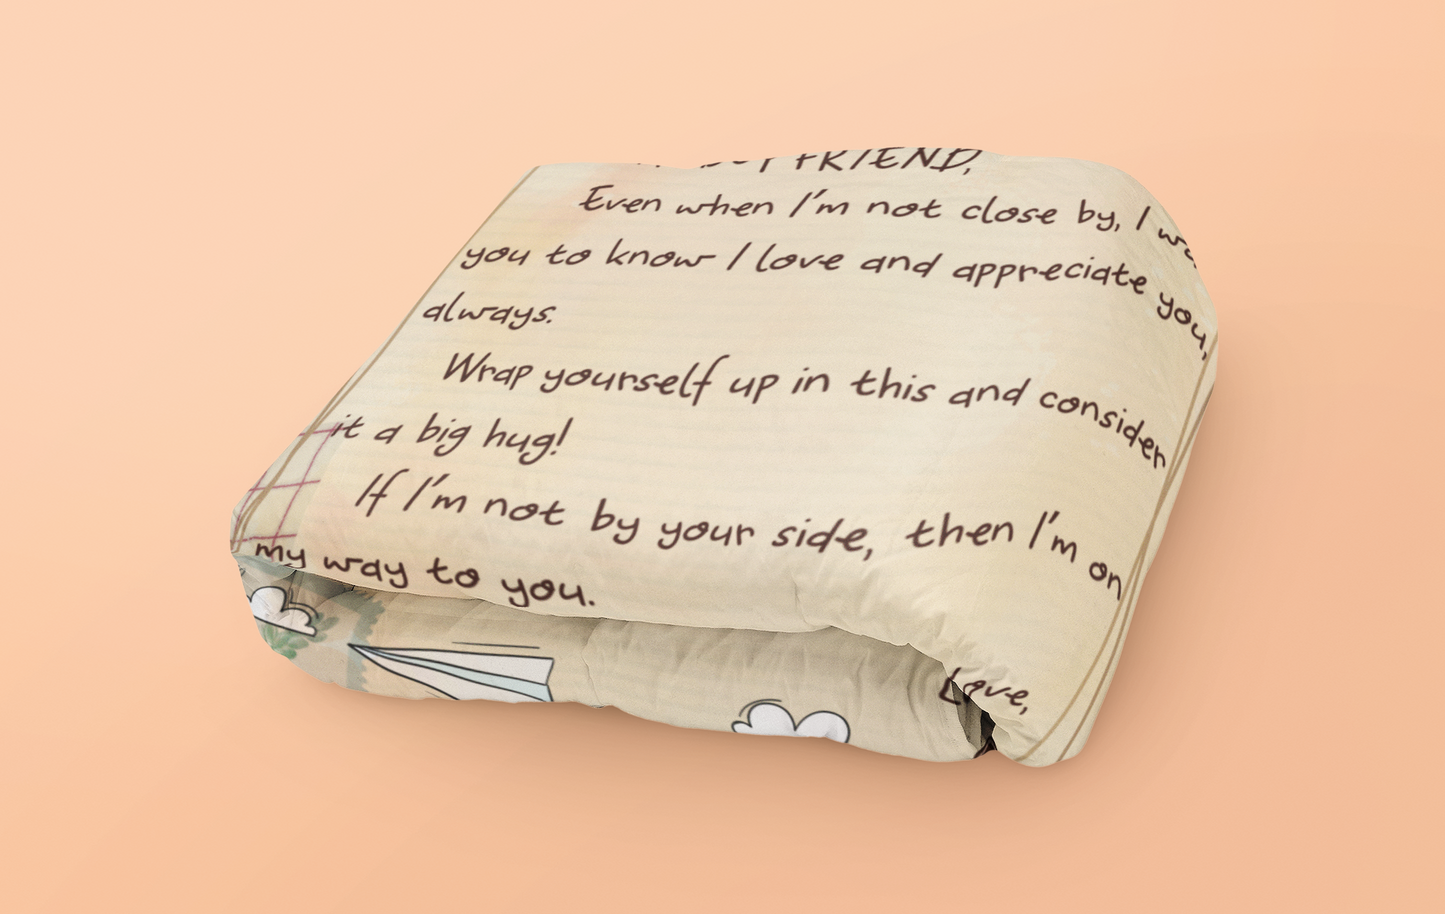 BOYFRIEND,
Even when I'm not close by, I
you to know I love and appreciate you,
always.
Wrap yourself up in this and consider
it a big hug!
If I'm not by your side, then I'm on
my way to you.
Love,